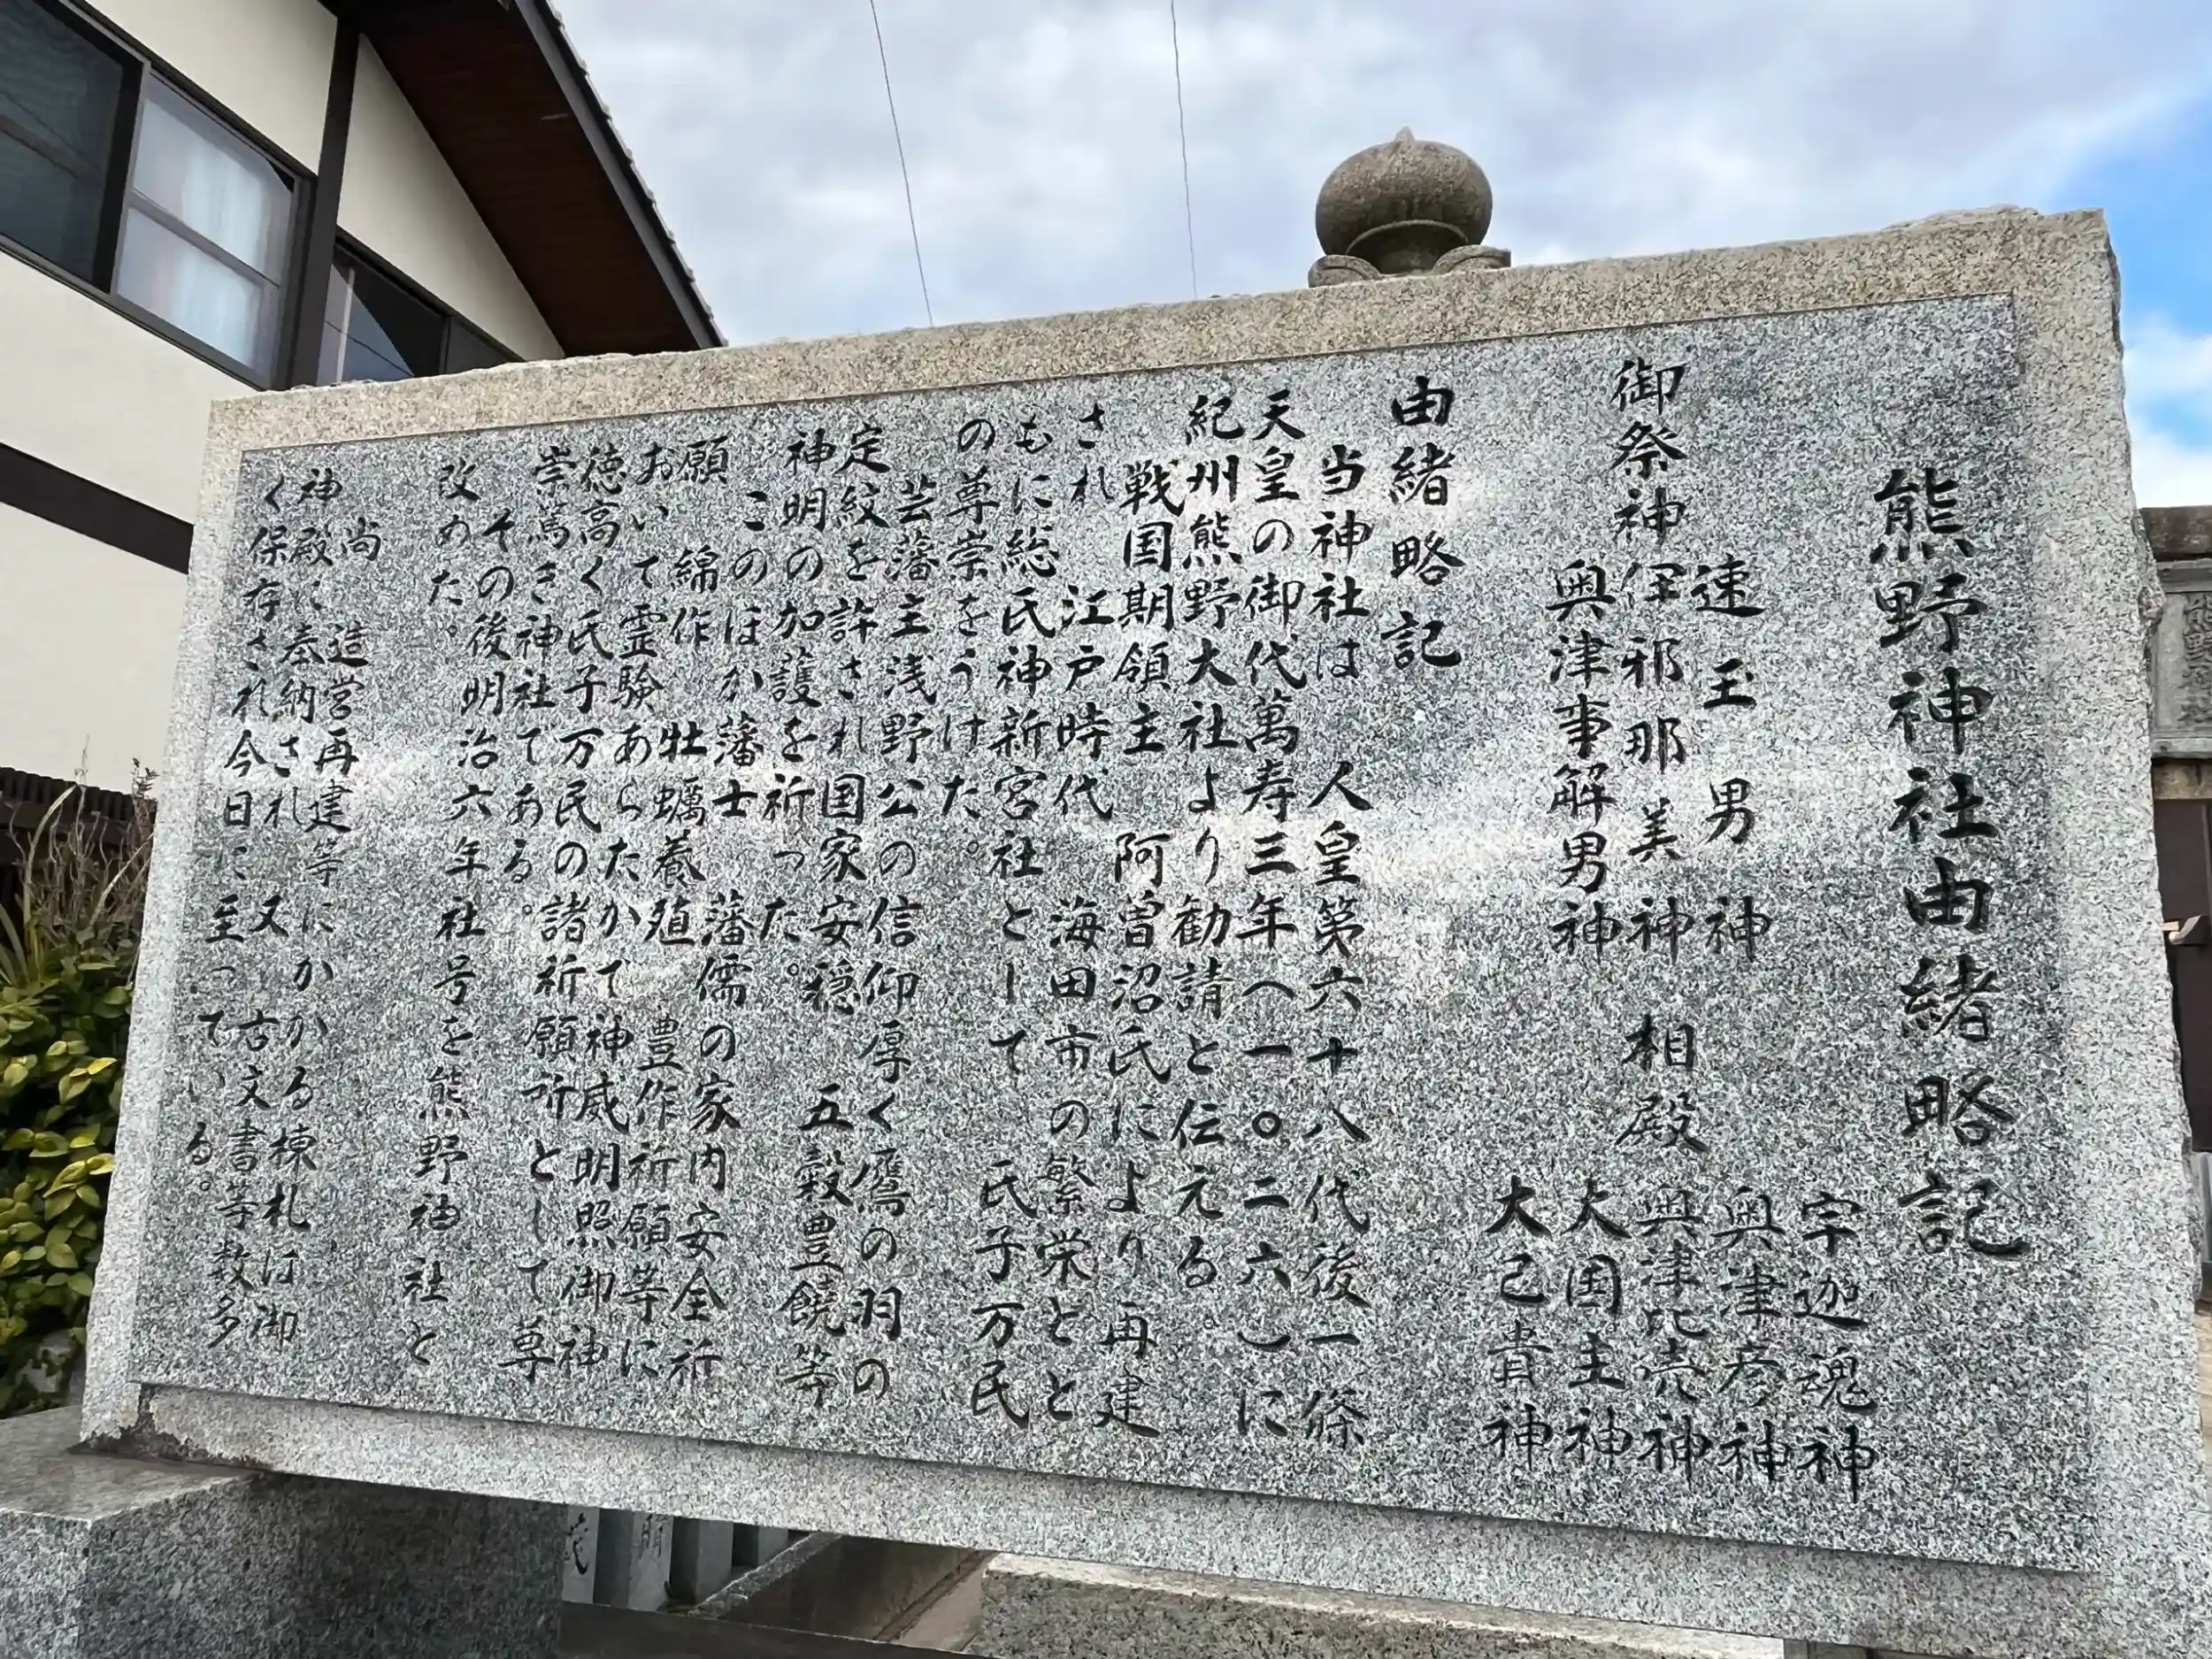 熊野神社由緒略記
速玉男神
御祭神 伊邪那美神
奥津事解男神
相殿
宇迦魂神
奥津彦神
奥津比売神
大国主神
大己貴神
由緒略記
当神社は 人皇第六十八代後一條
天皇の御代萬寿三年(一〇二六)に
紀州熊野大社より勧請と伝える。
戦国期領主 阿曽沼氏により 再建
され 江戸時代 海田市の繁栄とと
もに総氏神新宮社として 氏子万民
の尊崇をうけた。
芸藩主浅野公の信仰厚く鷹の羽の
定紋を許され国家安穏 五穀豊饒等
神明の加護を祈った。
このほか藩士 藩儒の家内安全祈
願 綿作 牡蠣養殖 豊作祈願等に
おいて霊験あらたかで神威明照御神
徳高く氏子万民の諸祈願所として尊
崇篤き神社である。
その後明治六年社号を熊野神社と
改めた。
尚 造営再建等にかかる棟札は御
神殿に奉納され 又 古文書等数多
く保存され今日に至っている。